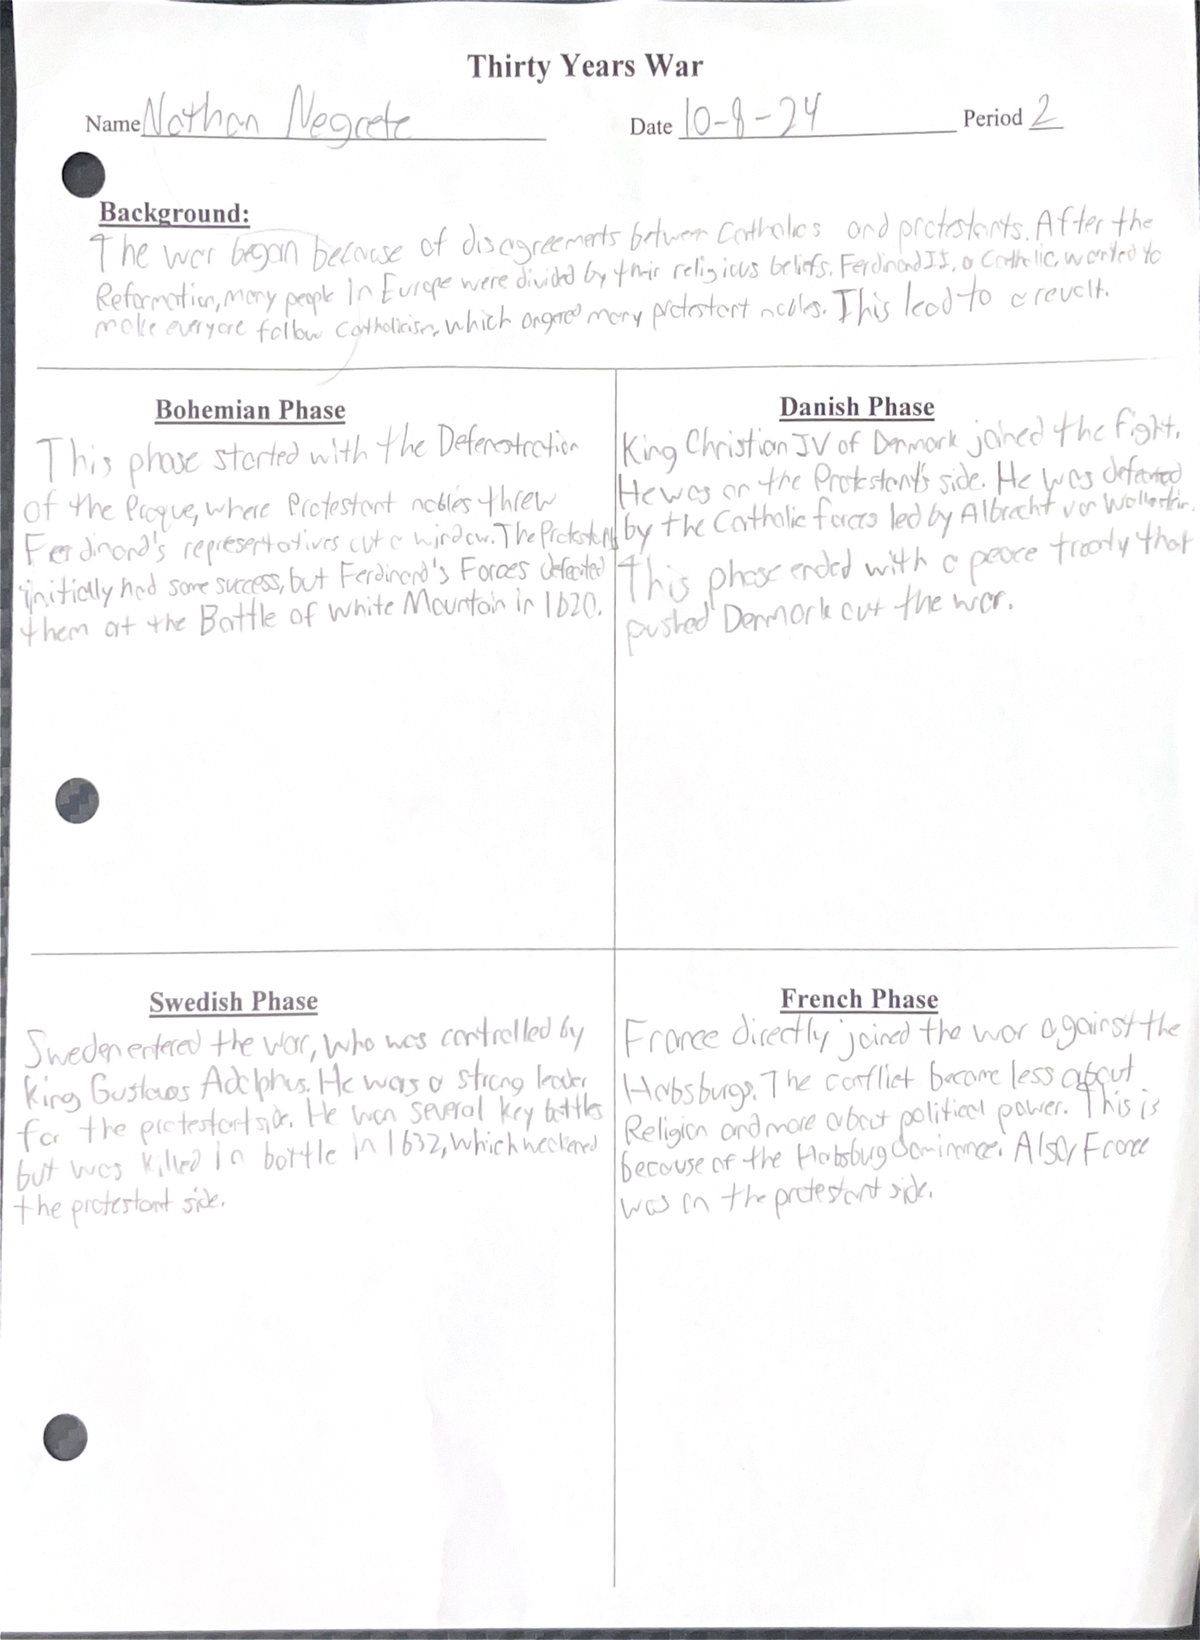 Thirty Years War
Name Nathan Negrete Date 10-8-24 Period 2
Background:
The war began because of disagreements between Catholics and protestants. After the
Reformation, many people in Europe were divided by their religious beliefs. Ferdinand II, a Catholic, wanted to
make everyone follow Catholicism, which angered many protestant nobles. This lead to a revolt.
Bohemian Phase
This phase started with the Defenestration
of the Prague, where Protestant nobles threw
Ferdinand's representatives out a window. The Protestants
initially had some success, but Ferdinand's Forces defeated
them at the Battle of White Mountain in 1620.
Danish Phase
King Christian IV of Denmark joined the fight.
He was on the Protestant's side. He was defeated
by the Catholic forces led by Albrecht von Wallenstein.
This phase ended with a peace treaty that
pushed Denmark out the war.
Swedish Phase
Sweden entered the war, who was controlled by
King Gustavus Adolphus. He was a strong leader
for the protestant side. He won several key battles
but was killed in battle in 1632, which weakened
the protestant side.
French Phase
France directly joined the war against the
Habsburgs. The conflict became less about
Religion and more about political power. This is
because of the Habsburg dominance. Also, France
was on the protestant side.